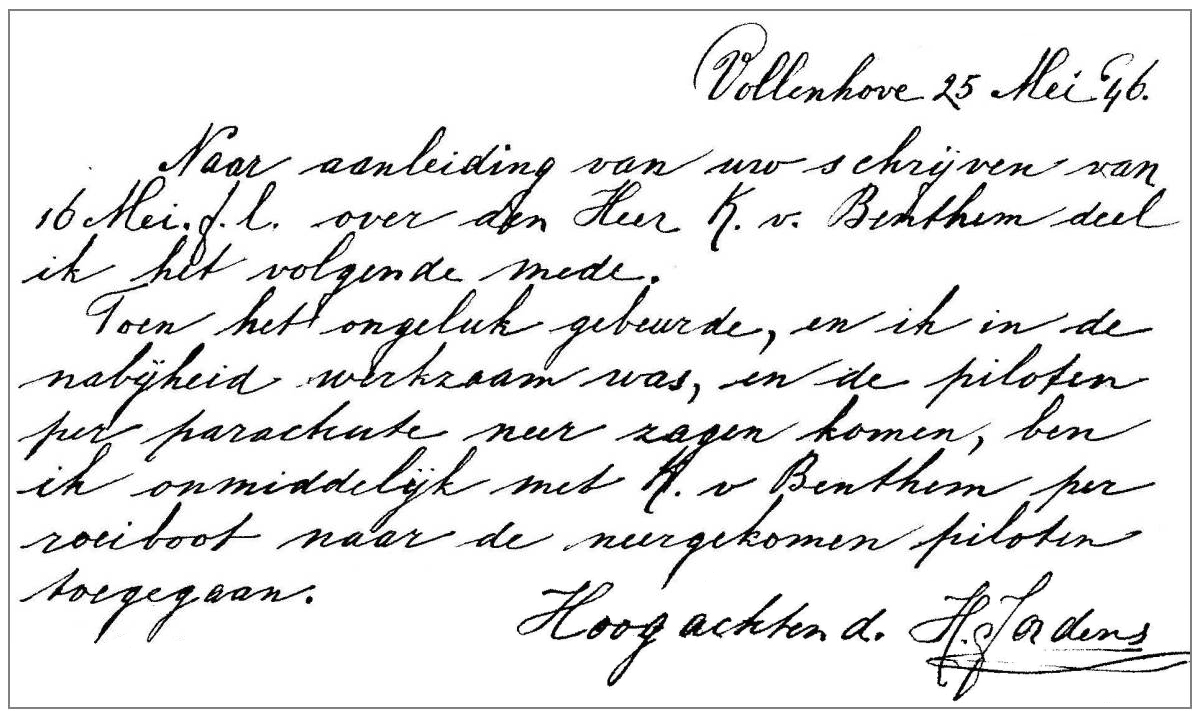 Vollenhove 25 Mei '46.
Naar aanleiding van uw schrijven van
16 Mei. j. l. over den Heer K. v. Benthem deel
ik het volgende mede.
Toen het ongeluk gebeurde, en ik in de
nabijheid werkzaam was, en de piloten
per parachute neer zagen komen, ben
ik onmiddelijk met K. v Benthem per
roeiboot naar de neergekomen piloten
toegegaan.
Hoogachtend. H. Jordens